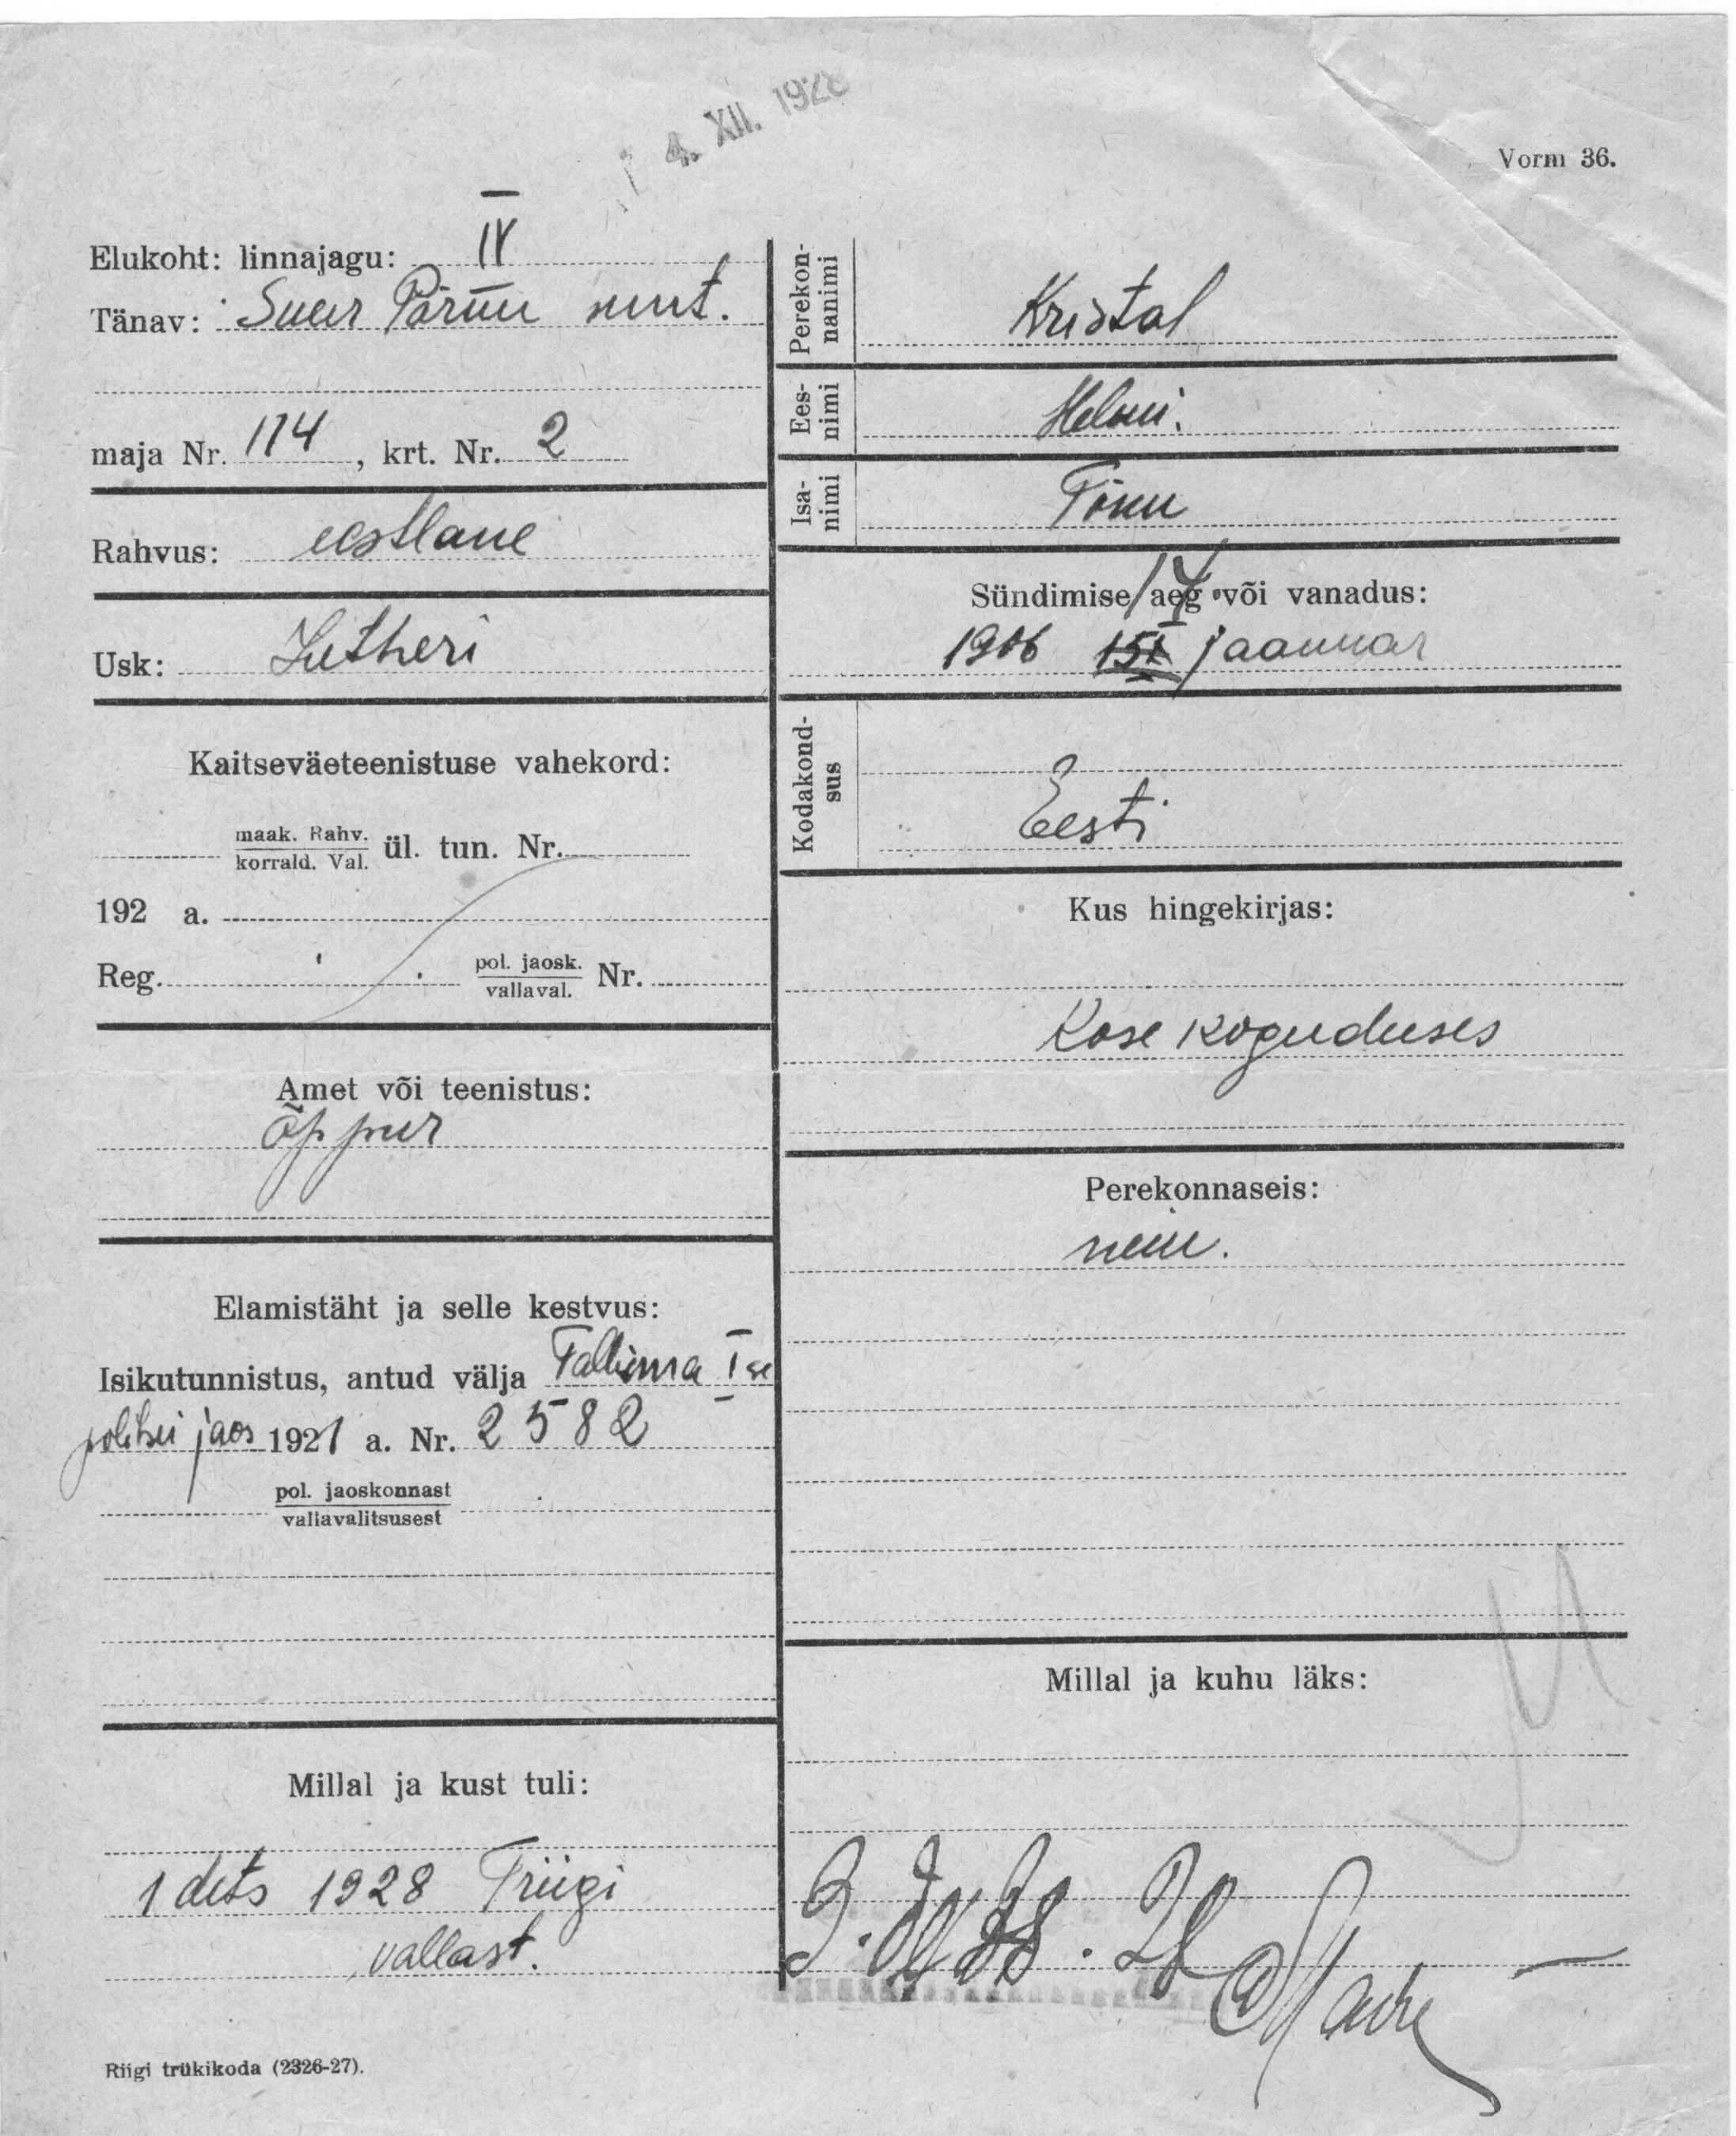 4. XII. 1928
Vorm 36.
Elukoht: linnajagu: IV
Tänav: Suur Pärnu mnt.
maja Nr. 174, krt. Nr. 2
Rahvus: eestlane
Usk: Lutheri
Kaitseväeteenistuse vahekord:
maak. Rahv.
korrald. Val.
ül. tun. Nr.
192 a.
Reg. pol. jaosk.
vallaval.
Nr.
Amet või teenistus:
õppur
Elamistäht ja selle kestvus:
Isikutunnistus, antud välja Tallinna I se
politsei jaos 1921 a. Nr. 2582
pol. jaoskonnast
vallavalitsusest
Millal ja kust tuli:
1 dets 1928 Triigi
vallast.
Riigi trükikoda (2326-27).
Perekon-
nanimi
Kristal
Ees-
nimi
Helmi.
Isa-
nimi
Tõnu
Sündimise aeg või vanadus:
14
1906 15 jaanuar
Kodakond-
sus
Eesti
Kus hingekirjas:
Kose koguduses
Perekonnaseis:
neiu.
Millal ja kuhu läks: